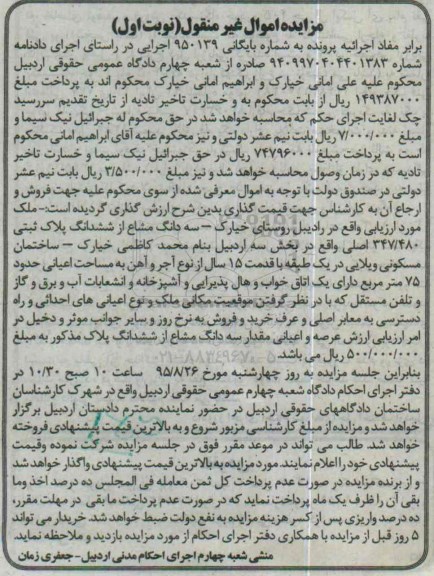 مزایده اموال غیر منقول(نوبت اول)
برابر مفاد اجرائیه پرونده به شماره بایگانی ۹۵۰۱۳۹ اجرایی در راستای اجرای دادنامه
شماره ۹۴۰۹۹۷۰۴۰۴۴۰۱۳۸۳ صادره از شعبه چهارم دادگاه عمومی حقوقی اردبیل
محکوم علیه علی امانی خیارک و ابراهیم امانی خیارک محکوم اند به پرداخت مبلغ
۱۴۹۳۸۷۰۰۰ ریال از بابت محکوم به و خسارت تاخیر تادیه از تاریخ تقدیم سررسید
چک لغایت اجرای حکم که محاسبه خواهد شد در حق محکوم له جبرائیل نیک سیما و
مبلغ ۷/۰۰۰/۰۰۰ ریال بابت نیم عشر دولتی و نیز محکوم علیه آقای ابراهیم امانی محکوم
است به پرداخت مبلغ ۷۴۷۹۶۰۰۰ ریال در حق جبرائیل نیک سیما و خسارت تاخیر
تادیه که در زمان وصول محاسبه خواهد شد و نیز مبلغ ۳/۵۰۰/۰۰۰ ریال بابت نیم عشر
دولتی در صندوق دولت با توجه به اموال معرفی شده از سوی محکوم علیه جهت فروش و
ارجاع آن به کارشناس جهت قیمت گذاری بدین شرح ارزش گذاری گردیده است:- ملک
مورد ارزیابی واقع در رادیبل روستای خیارک – سه دانگ مشاع از ششدانگ پلاک ثبتی
۳۴۷/۴۸۰ اصلی واقع در بخش سه اردبیل بنام محمد کاظمی خیارک – ساختمان
مسکونی ویلایی در یک طبقه با قدمت ۱۵ سال از نوع آجر و آهن به مساحت اعیانی حدود
۷۵ متر مربع دارای یک اتاق خواب و هال پذیرایی و آشپزخانه و انشعابات آب و برق و گاز
و تلفن مستقل که با در نظر گرفتن موقعیت مکانی ملک و نوع اعیانی های احداثی و راه
دسترسی به معابر اصلی و عرف خرید و فروش به نرخ روز و سایر جوانب موثر و دخیل در
امر ارزیابی ارزش عرصه و اعیانی مقدار سه دانگ مشاع از ششدانگ پلاک مذکور به مبلغ
۵۰۰/۰۰۰/۰۰۰ ریال می باشد.
بنابراین جلسه مزایده به روز چهارشنبه مورخ ۹۵/۸/۲۶ ساعت ۱۰ صبح ۱۰/۳۰ در
دفتر اجرای احکام دادگاه شعبه چهارم عمومی حقوقی اردبیل واقع در شهرک کارشناسان
ساختمان دادگاههای حقوقی اردبیل در حضور نماینده محترم دادستان اردبیل برگزار
خواهد شد و مزایده از مبلغ کارشناسی مزبور شروع و به بالاترین قیمت پیشنهادی فروخته
خواهد شد. طالب می تواند در موعد مقرر فوق در جلسه مزایده شرکت نموده وقیمت
پیشنهادی خود را اعلام نمایند. مورد مزایده به بالاترین قیمت پیشنهادی واگذار خواهد شد
و از برنده مزایده در صورت عدم پرداخت کل ثمن معامله فی المجلس ده درصد اخذ وما
بقی آن را ظرف یک ماه پرداخت نماید که در صورت عدم پرداخت ما بقی در مهلت مقرر،
ده درصد واریزی پس از کسر هزینه مزایده به نفع دولت ضبط خواهد شد. خریدار می تواند
۵ روز قبل از مزایده با همکاری دفتر اجرای احکام از مورد مزایده بازدید و ملاحظه نماید.
منشی شعبه چهارم اجرای احکام مدنی اردبیل- جعفری زمان